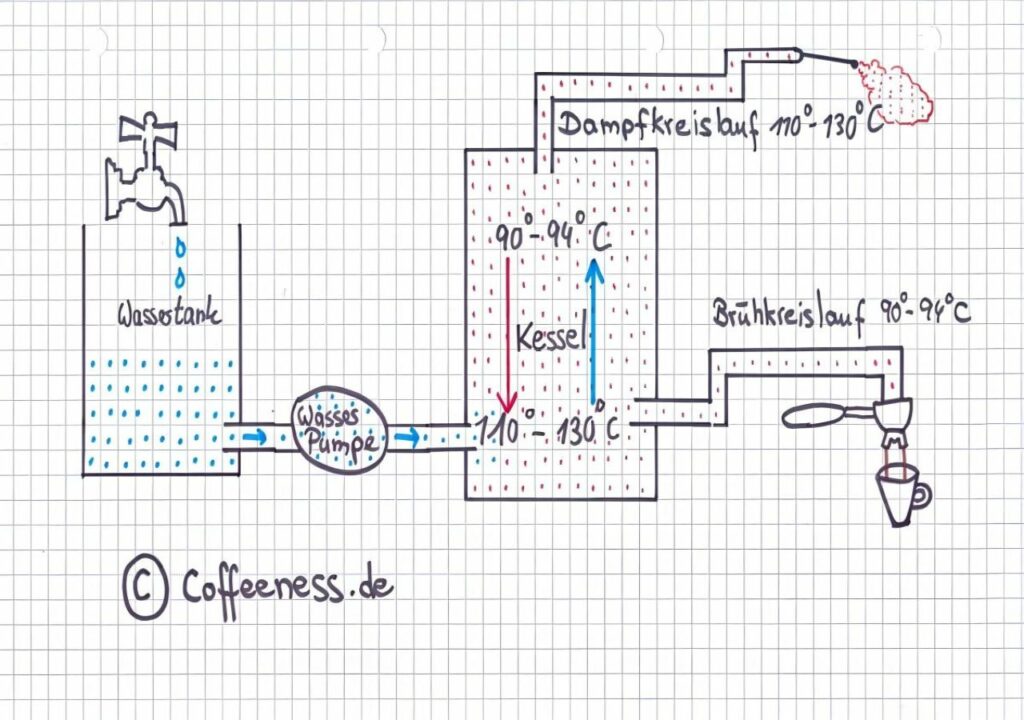 Dampfkreislauf 110°-130°C
90°-94°C
Wassertank
Brühkreislauf 90°-94°C
Kessel
Wasser
Pumpe
110°-130°C
© Coffeeness.de